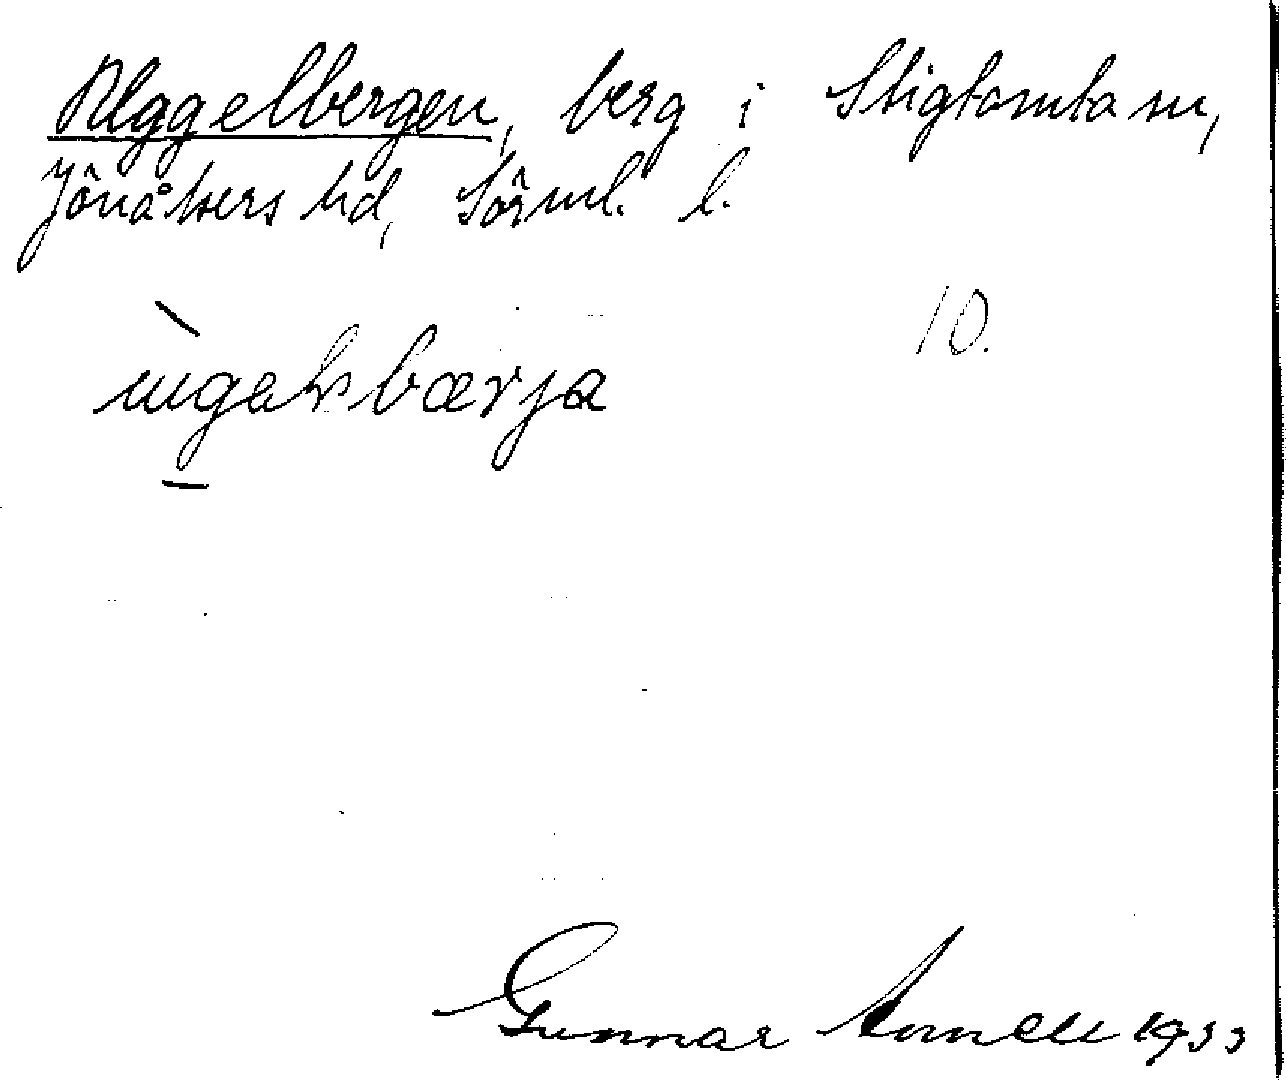 Uggelbergen, berg i Stigtomta sn,
Jönåkers hd, Sörml. l.
10.
Gunnar Arnell 1933